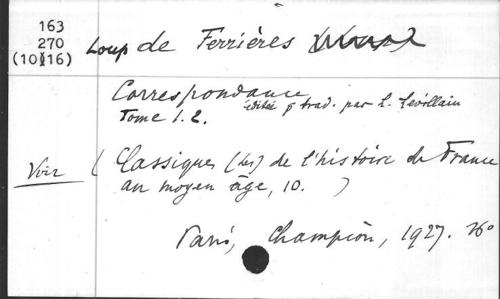 163
270
(10 16)
Loup de Ferrières
Correspondance
éditée & trad. par L. Levillain
Tome 1. 2.
Voir (Classiques (les) de l'histoire de France
au moyen âge, 10. )
Paris, Champion, 1927. 16°